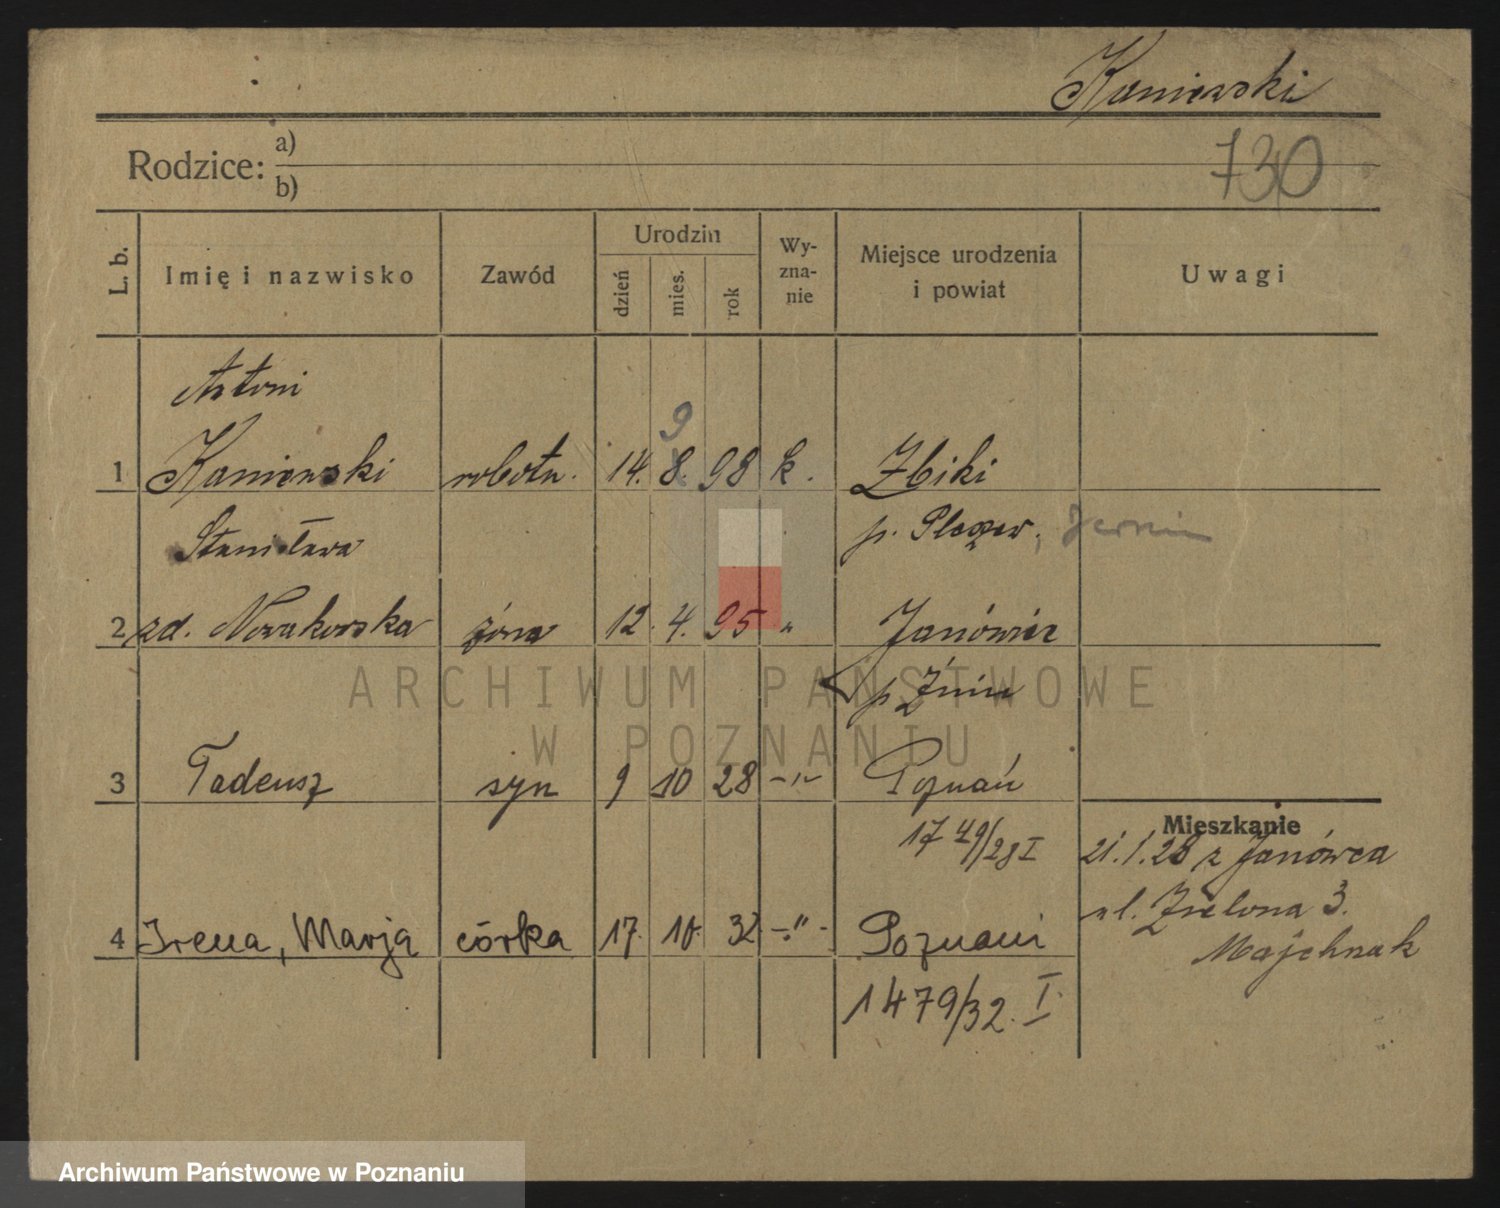 Kaniewski
Rodzice: a)
b)
730
L. b.
Imię i nazwisko
Zawód
Urodzin
dzień
mies.
rok
Wy-
zna-
nie
Miejsce urodzenia
i powiat
Uwagi
Antoni
9
1 Kaniewski robotn. 14. 8. 98 k. Zbiki
Stanisława p. Pleszew,
2 zd. Nowakowska żona 12. 4. 95 " Janówiec
p Żnin
ARCHIWUM PAŃSTWOWE
W POZNANIU
3 Tadeusz syn 9 10 28 -"- Poznań
Mieszkanie
1749/28 I 21.1.28 z Janówca
ul. Zielona 3.
4 Irena, Marja córka 17. 10. 32 -"- Poznań
Majchrzak
1479/32. I.
Archiwum Państwowe w Poznaniu